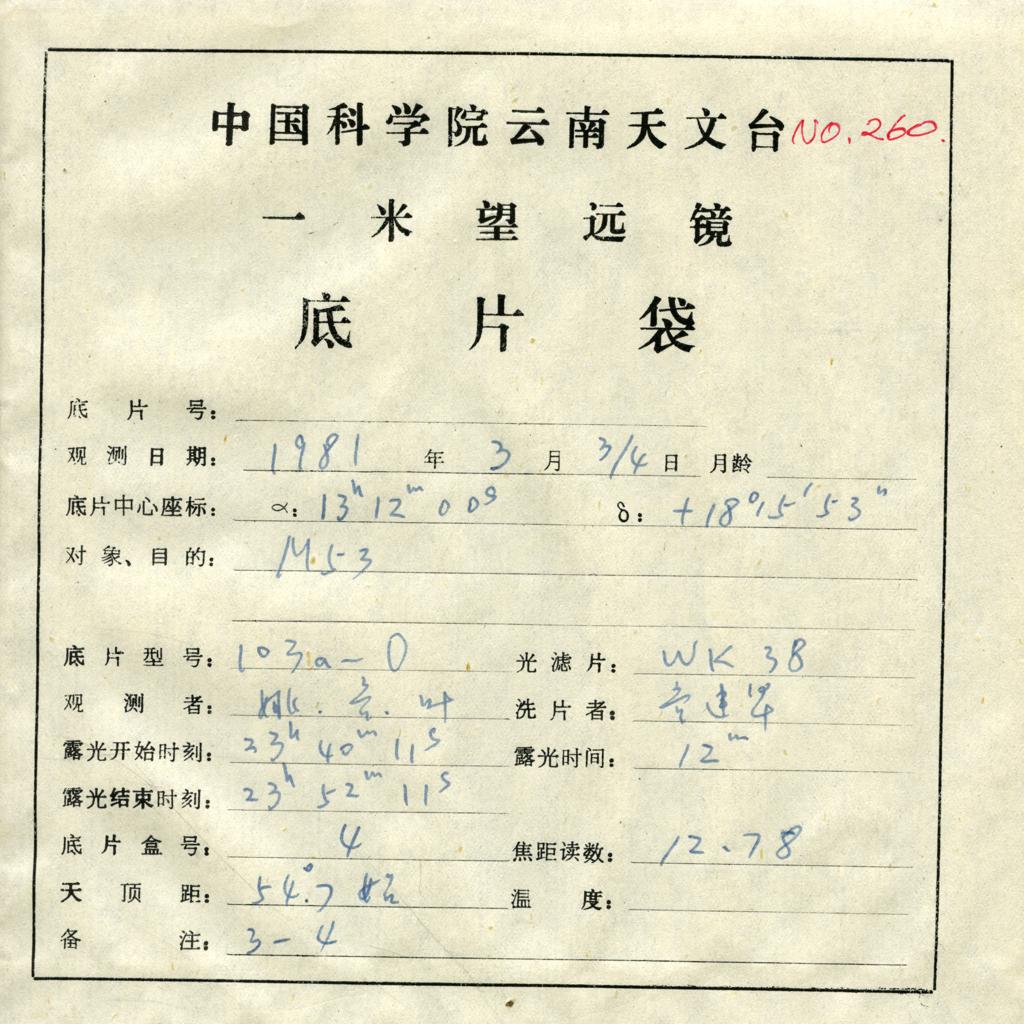 中国科学院云南天文台 NO.260.
一米望远镜
底片袋
底片号:
观测日期: 1981 年 3 月 3/4 日 月龄
底片中心座标: α: 13h 12m 00s δ: +18°15′53″
对象、目的: M53
底片型号: 103a-O 光滤片: WK 38
观测者: 姚. . 叶 洗片者: 建军
露光开始时刻: 23h 40m 11s 露光时间: 12m
露光结束时刻: 23h 52m 11s
底片盒号: 4 焦距读数: 12.78
天顶距: 54°.7 始 温度:
备注: 3-4